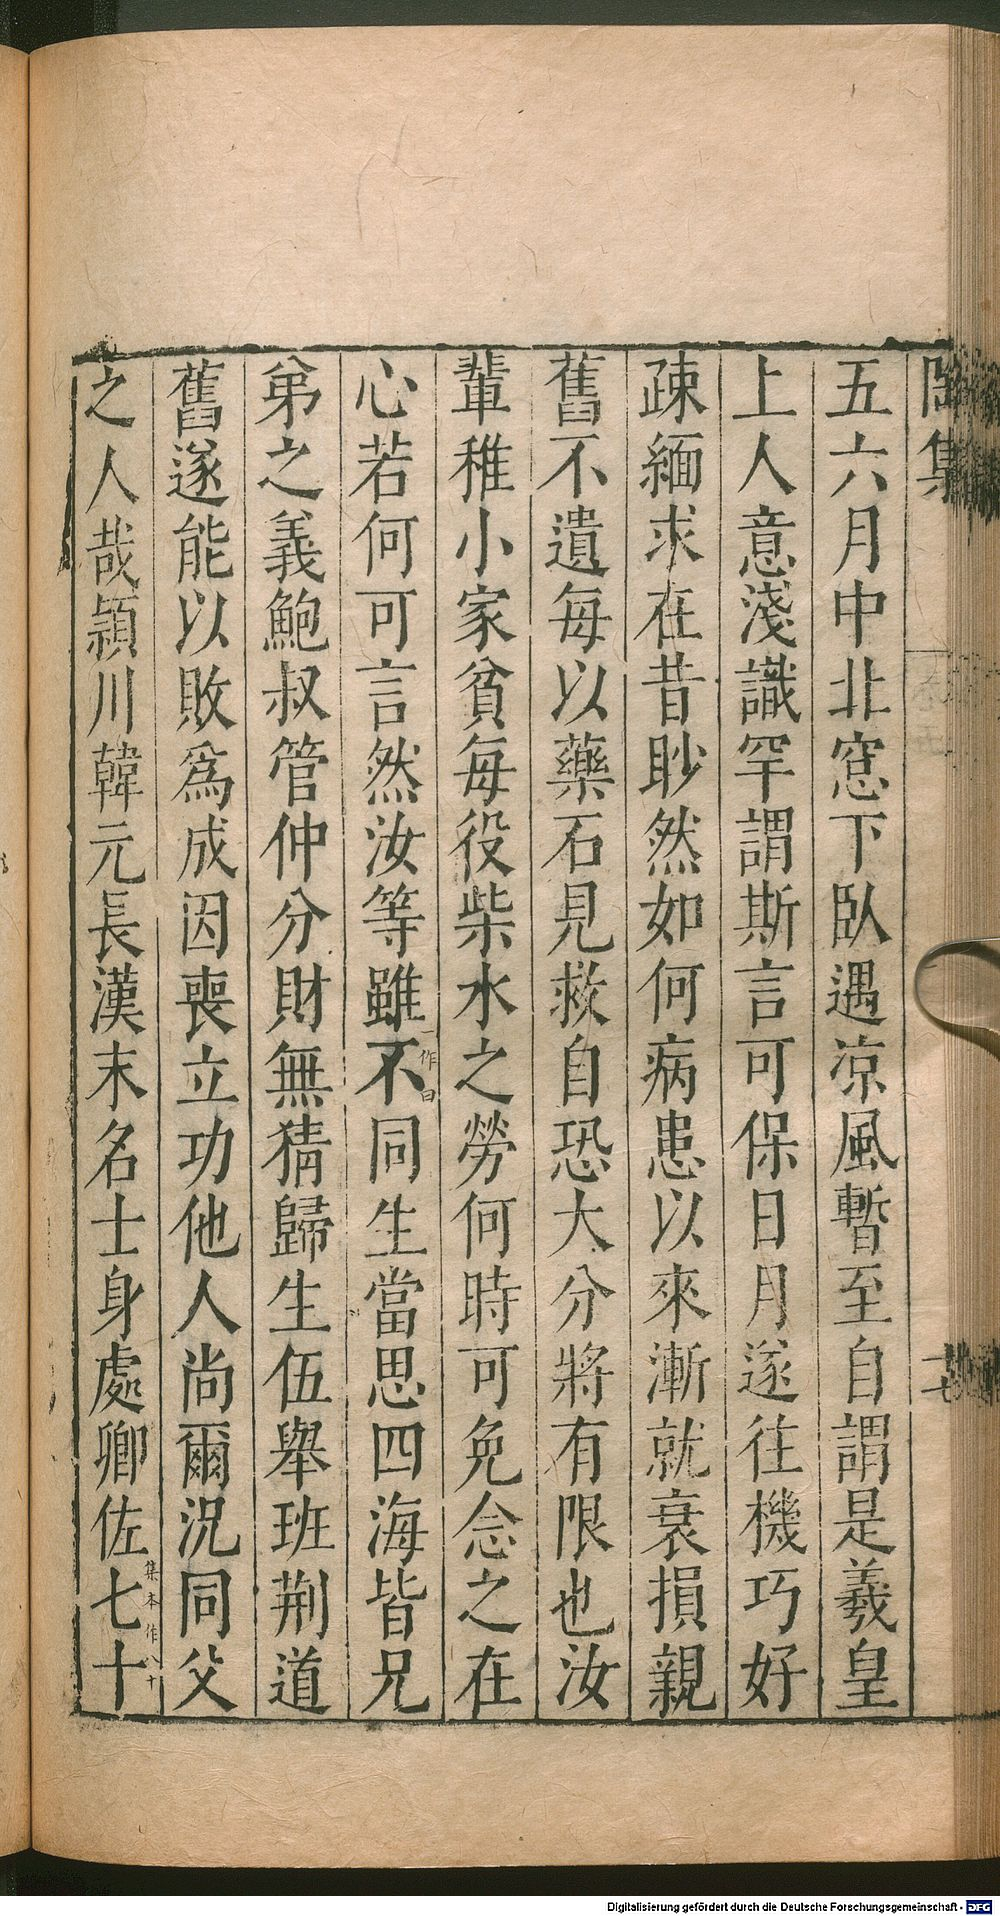 陶集
五六月中北窓下臥遇凉風暫至自謂是羲皇
上人意淺識罕謂斯言可保日月遂往機巧好
疎緬求在昔眇然如何病患以來漸就衰損親
舊不遺每以藥石見救自恐大分將有限也汝
輩稚小家貧每役柴水之勞何時可免念之在
心若何可言然汝等雖不一作曰同生當思四海皆兄
弟之義鮑叔管仲分財無猜歸生伍舉班荆道
舊遂能以敗爲成因喪立功他人尚爾況同父
之人哉潁川韓元長漢末名士身處卿佐七集本作八十
Digitalisierung gefördert durch die Deutsche Forschungsgemeinschaft - DFG